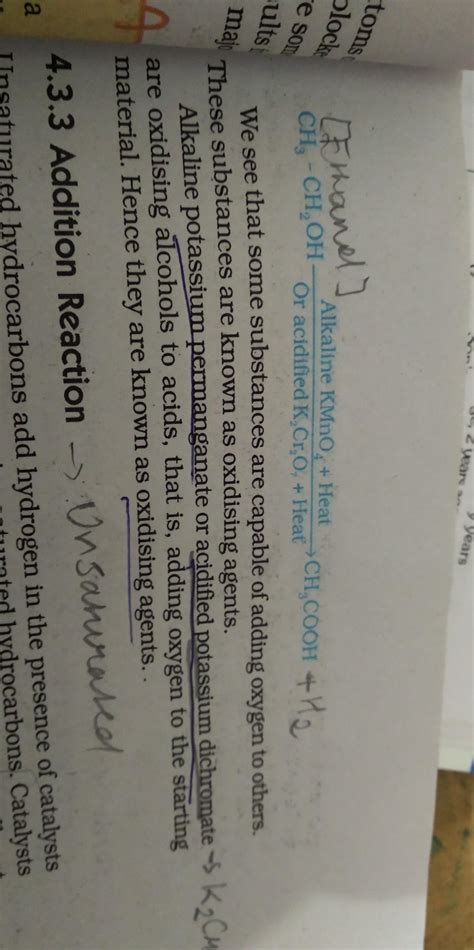 ctoms
block
e son
ults
majo
years
2 years
[Ethanol]
CH₃ – CH₂OH Alkaline KMnO₄ + Heat → CH₃COOH + H₂
Or acidified K₂Cr₂O₇ + Heat
We see that some substances are capable of adding oxygen to others.
These substances are known as oxidising agents.
Alkaline potassium permanganate or acidified potassium dichromate →
are oxidising alcohols to acids, that is, adding oxygen to the starting
material. Hence they are known as oxidising agents..
4.3.3 Addition Reaction → Unsaturated
Unsaturated hydrocarbons add hydrogen in the presence of catalysts
hydrocarbons. Catalysts
a